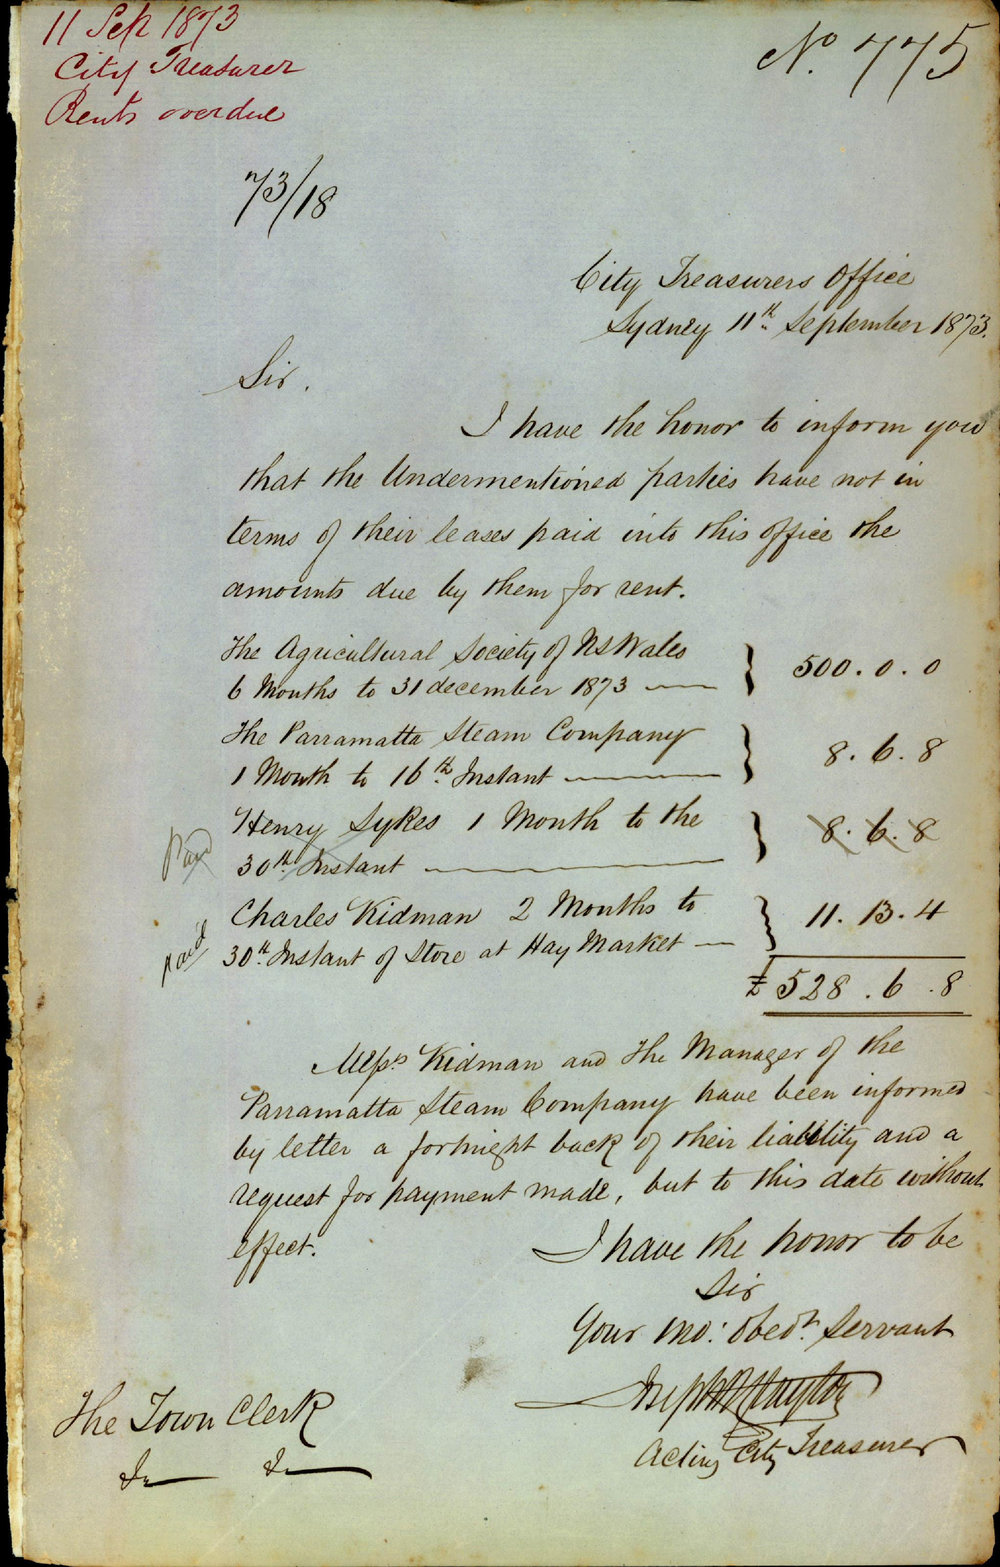 11 Sep 1873
City Treasurer
Rents overdue
No. 775
73/18
City Treasurers Office
Sydney 11th September 1873.
Sir.
I have the honor to inform you
that the Undermentioned parties have not in
terms of their leases paid into this office the
amounts due by them for rent.
The Agricultural Society of NS Wales
6 Months to 31 december 1873 — } 500. 0. 0
The Parramatta Steam Company
1 Month to 16th Instant — } 8. 6. 8
Paid
Henry Sykes 1 Month to the
30th Instant — } 8. 6. 8
paid
Charles Kidman 2 Months to
30th Instant of Store at Hay Market — } 11. 13. 4
£ 528. 6. 8
Messrs Kidman and The Manager of the
Parramatta Steam Company have been informed
by letter a fortnight back of their liability and a
request for payment made, but to this date without
effect.
I have the honor to be
Sir
Your mo: obedt. Servant
Acting City Treasurer
The Town Clerk